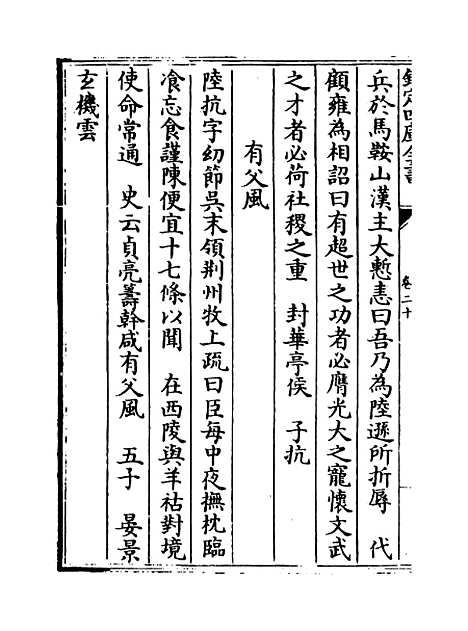 欽定四庫全書
卷二十
兵於馬鞍山漢主大慙恚曰吾乃為陸遜所折辱　代
顧雍為相詔曰有超世之功者必膺光大之寵懷文武
之才者必荷社稷之重　封華亭侯　子抗
有父風
陸抗字幼節吳末領荆州牧上疏曰臣每中夜撫枕臨
飡忘食謹陳便宜十七條以聞　在西陵與羊祜對境
使命常通　史云貞亮籌幹咸有父風　五子　晏景
玄機雲